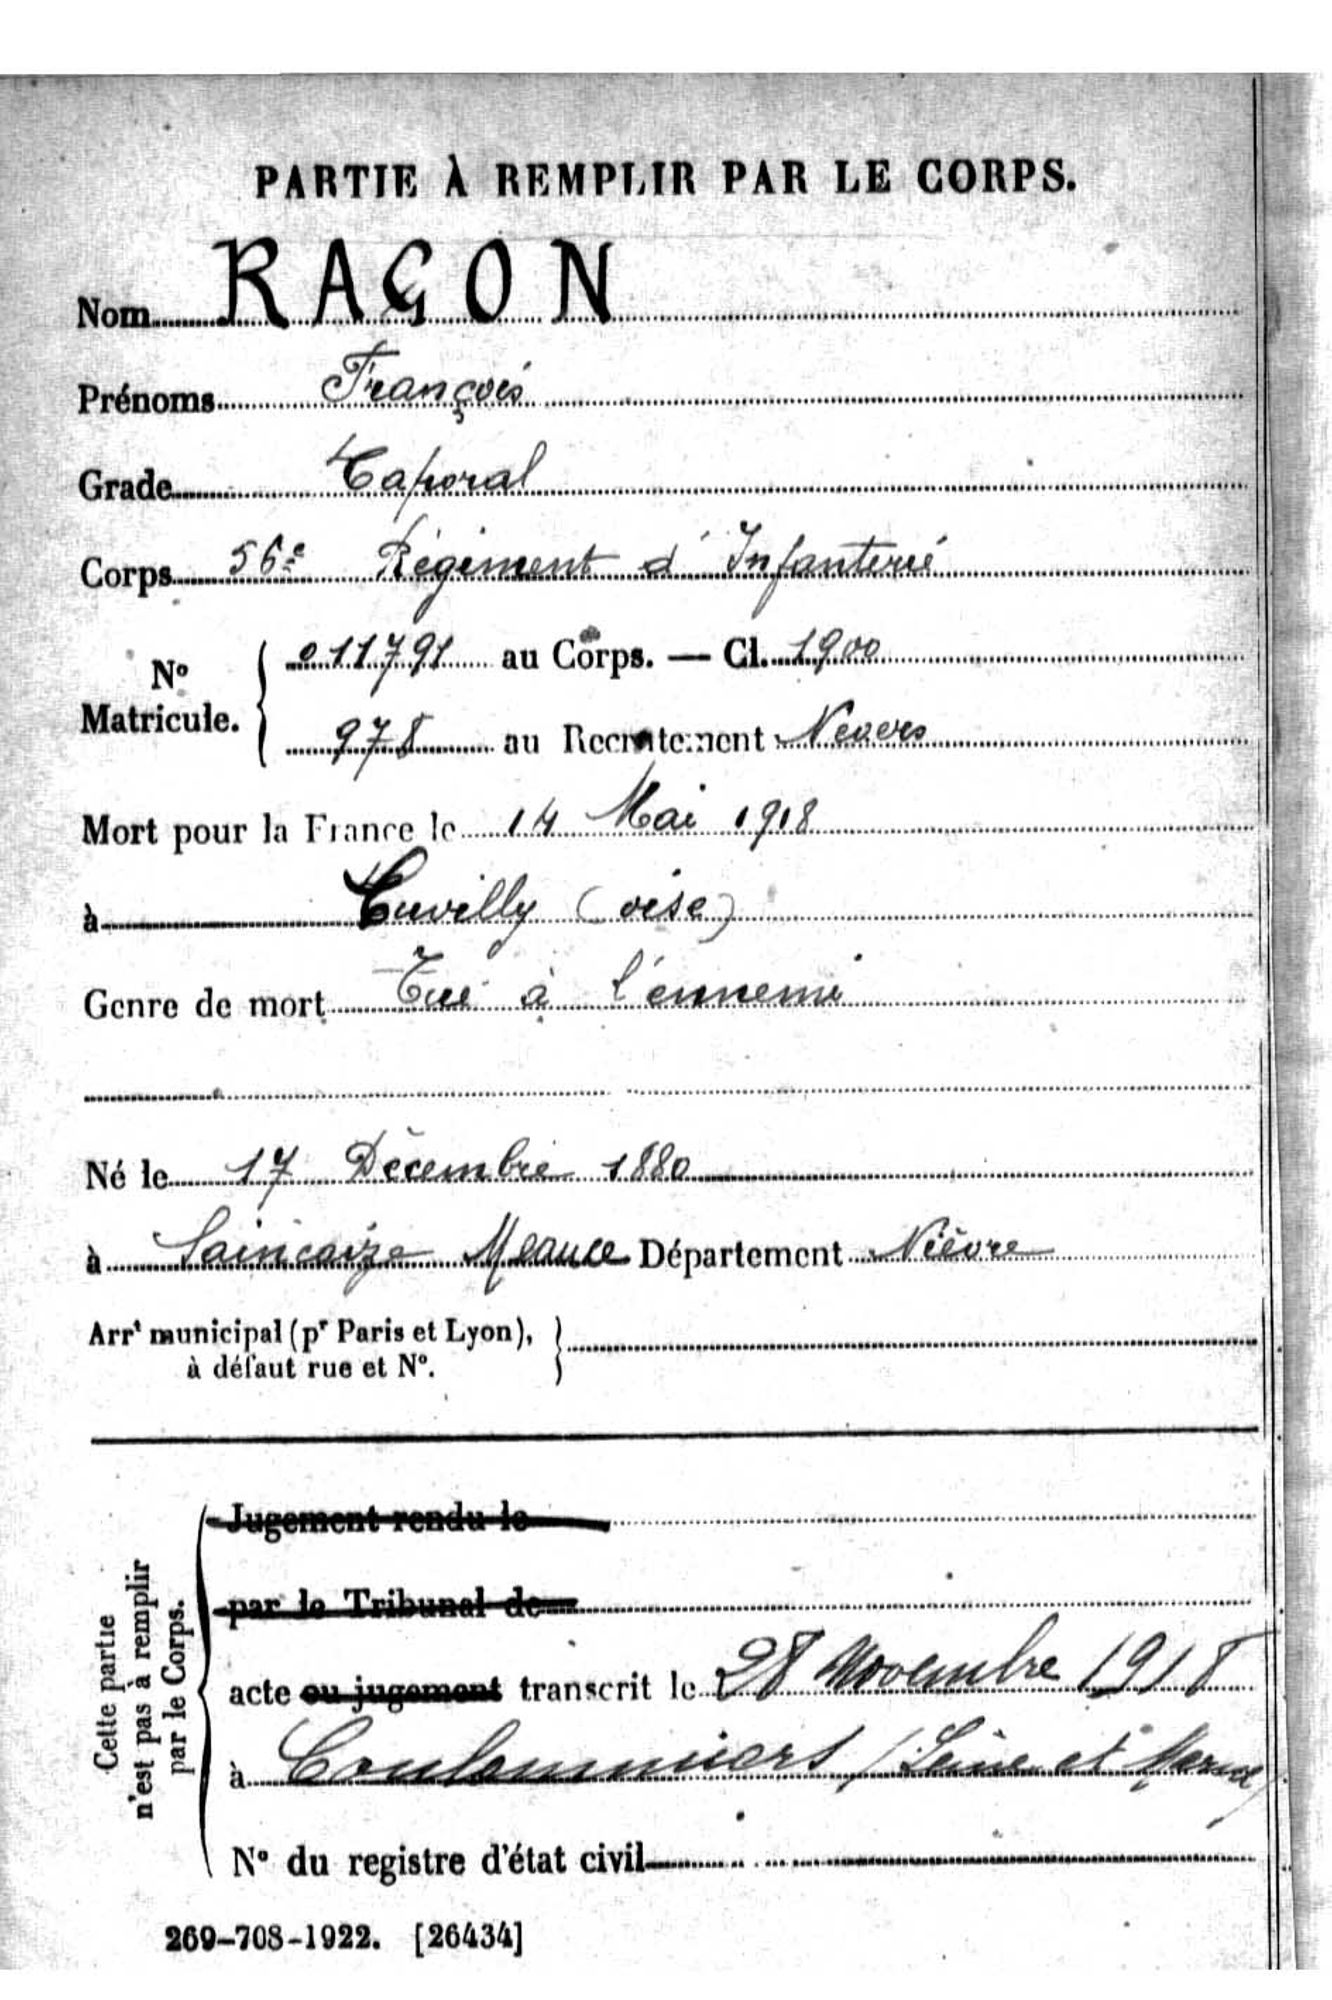 PARTIE À REMPLIR PAR LE CORPS.
Nom RAGON
Prénoms François
Grade Caporal
Corps 56e Régiment d'Infanterie
No Matricule. 011791 au Corps. — Cl. 1900
978 au Recrutement Nevers
Mort pour la France le 14 Mai 1918
à Cuvilly (oise)
Genre de mort Tué à l'ennemi
Né le 17 Décembre 1880
à Saincaize Meauce Département Nièvre
Arrt municipal (pr Paris et Lyon),
à défaut rue et No.
Cette partie
n'est pas à remplir
par le Corps.
Jugement rendu le
par le Tribunal de
acte ou jugement transcrit le 28 Novembre 1918
à Coulommiers (Seine et Marne)
No du registre d'état civil
269-708-1922. [26434]